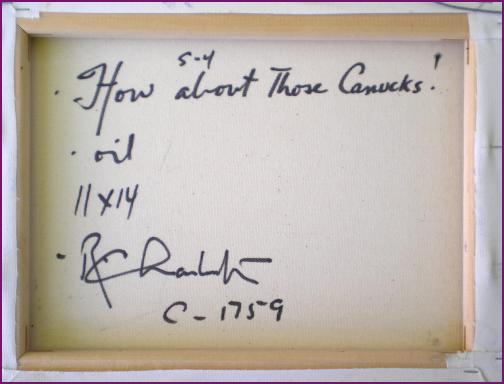 5-4
· How about Those Canucks!
· oil
11 x 14
C-1759